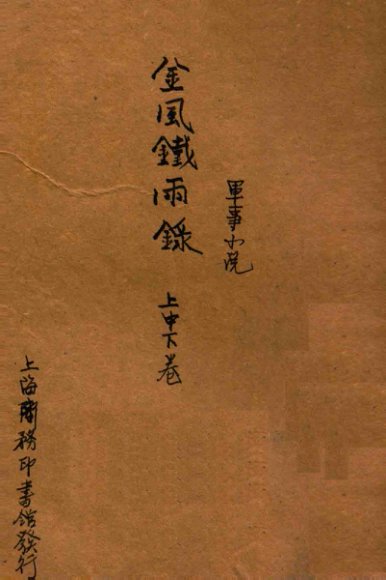 軍事小説
金風鐵雨錄
上中下卷
上海商務印書館發行